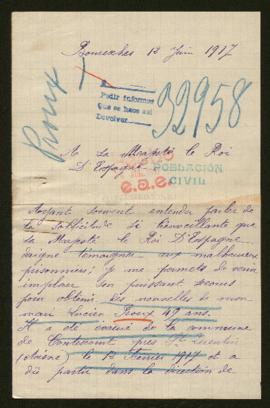 12 Juin 1917
Pedir informes
que se hace así
Devolver
Proux
32958
A Sa Majesté le Roi
D'Espagne
POBLACIÓN
CIVIL
e.a.e.
Ayant souvent entendu parler de
la sollicitude si bienveillante que
Sa Majesté le Roi D'Espagne
daigne témoigner aux malheureux
prisonniers; je me permets de venir
implorer son puissant secours
pour obtenir des nouvelles de mon
mari Lucien Proux 49 ans.
Il a été évacué de la commune
de Contescourt près St Quentin
(Aisne) le 12 Février 1917 et a
dû partir dans la direction de